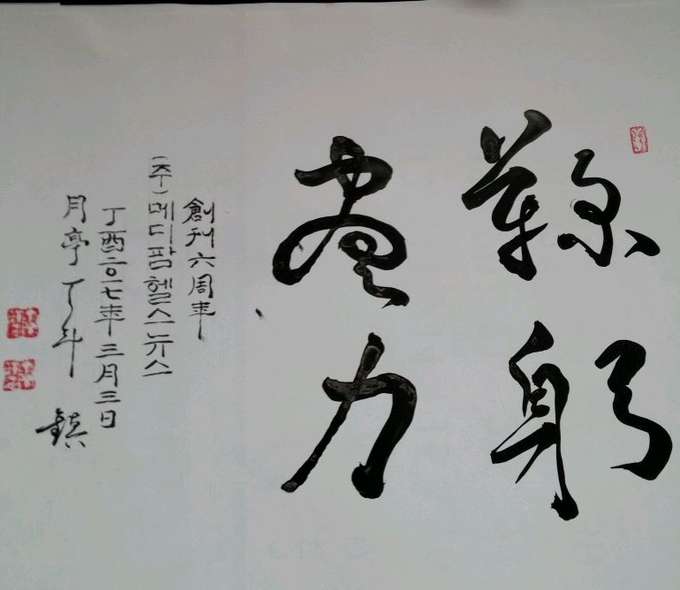 鞠躬
盡力
創刊六周年
(주)메디팜헬스뉴스
丁酉二〇一七年三月三日
月亭 丁斗鎮